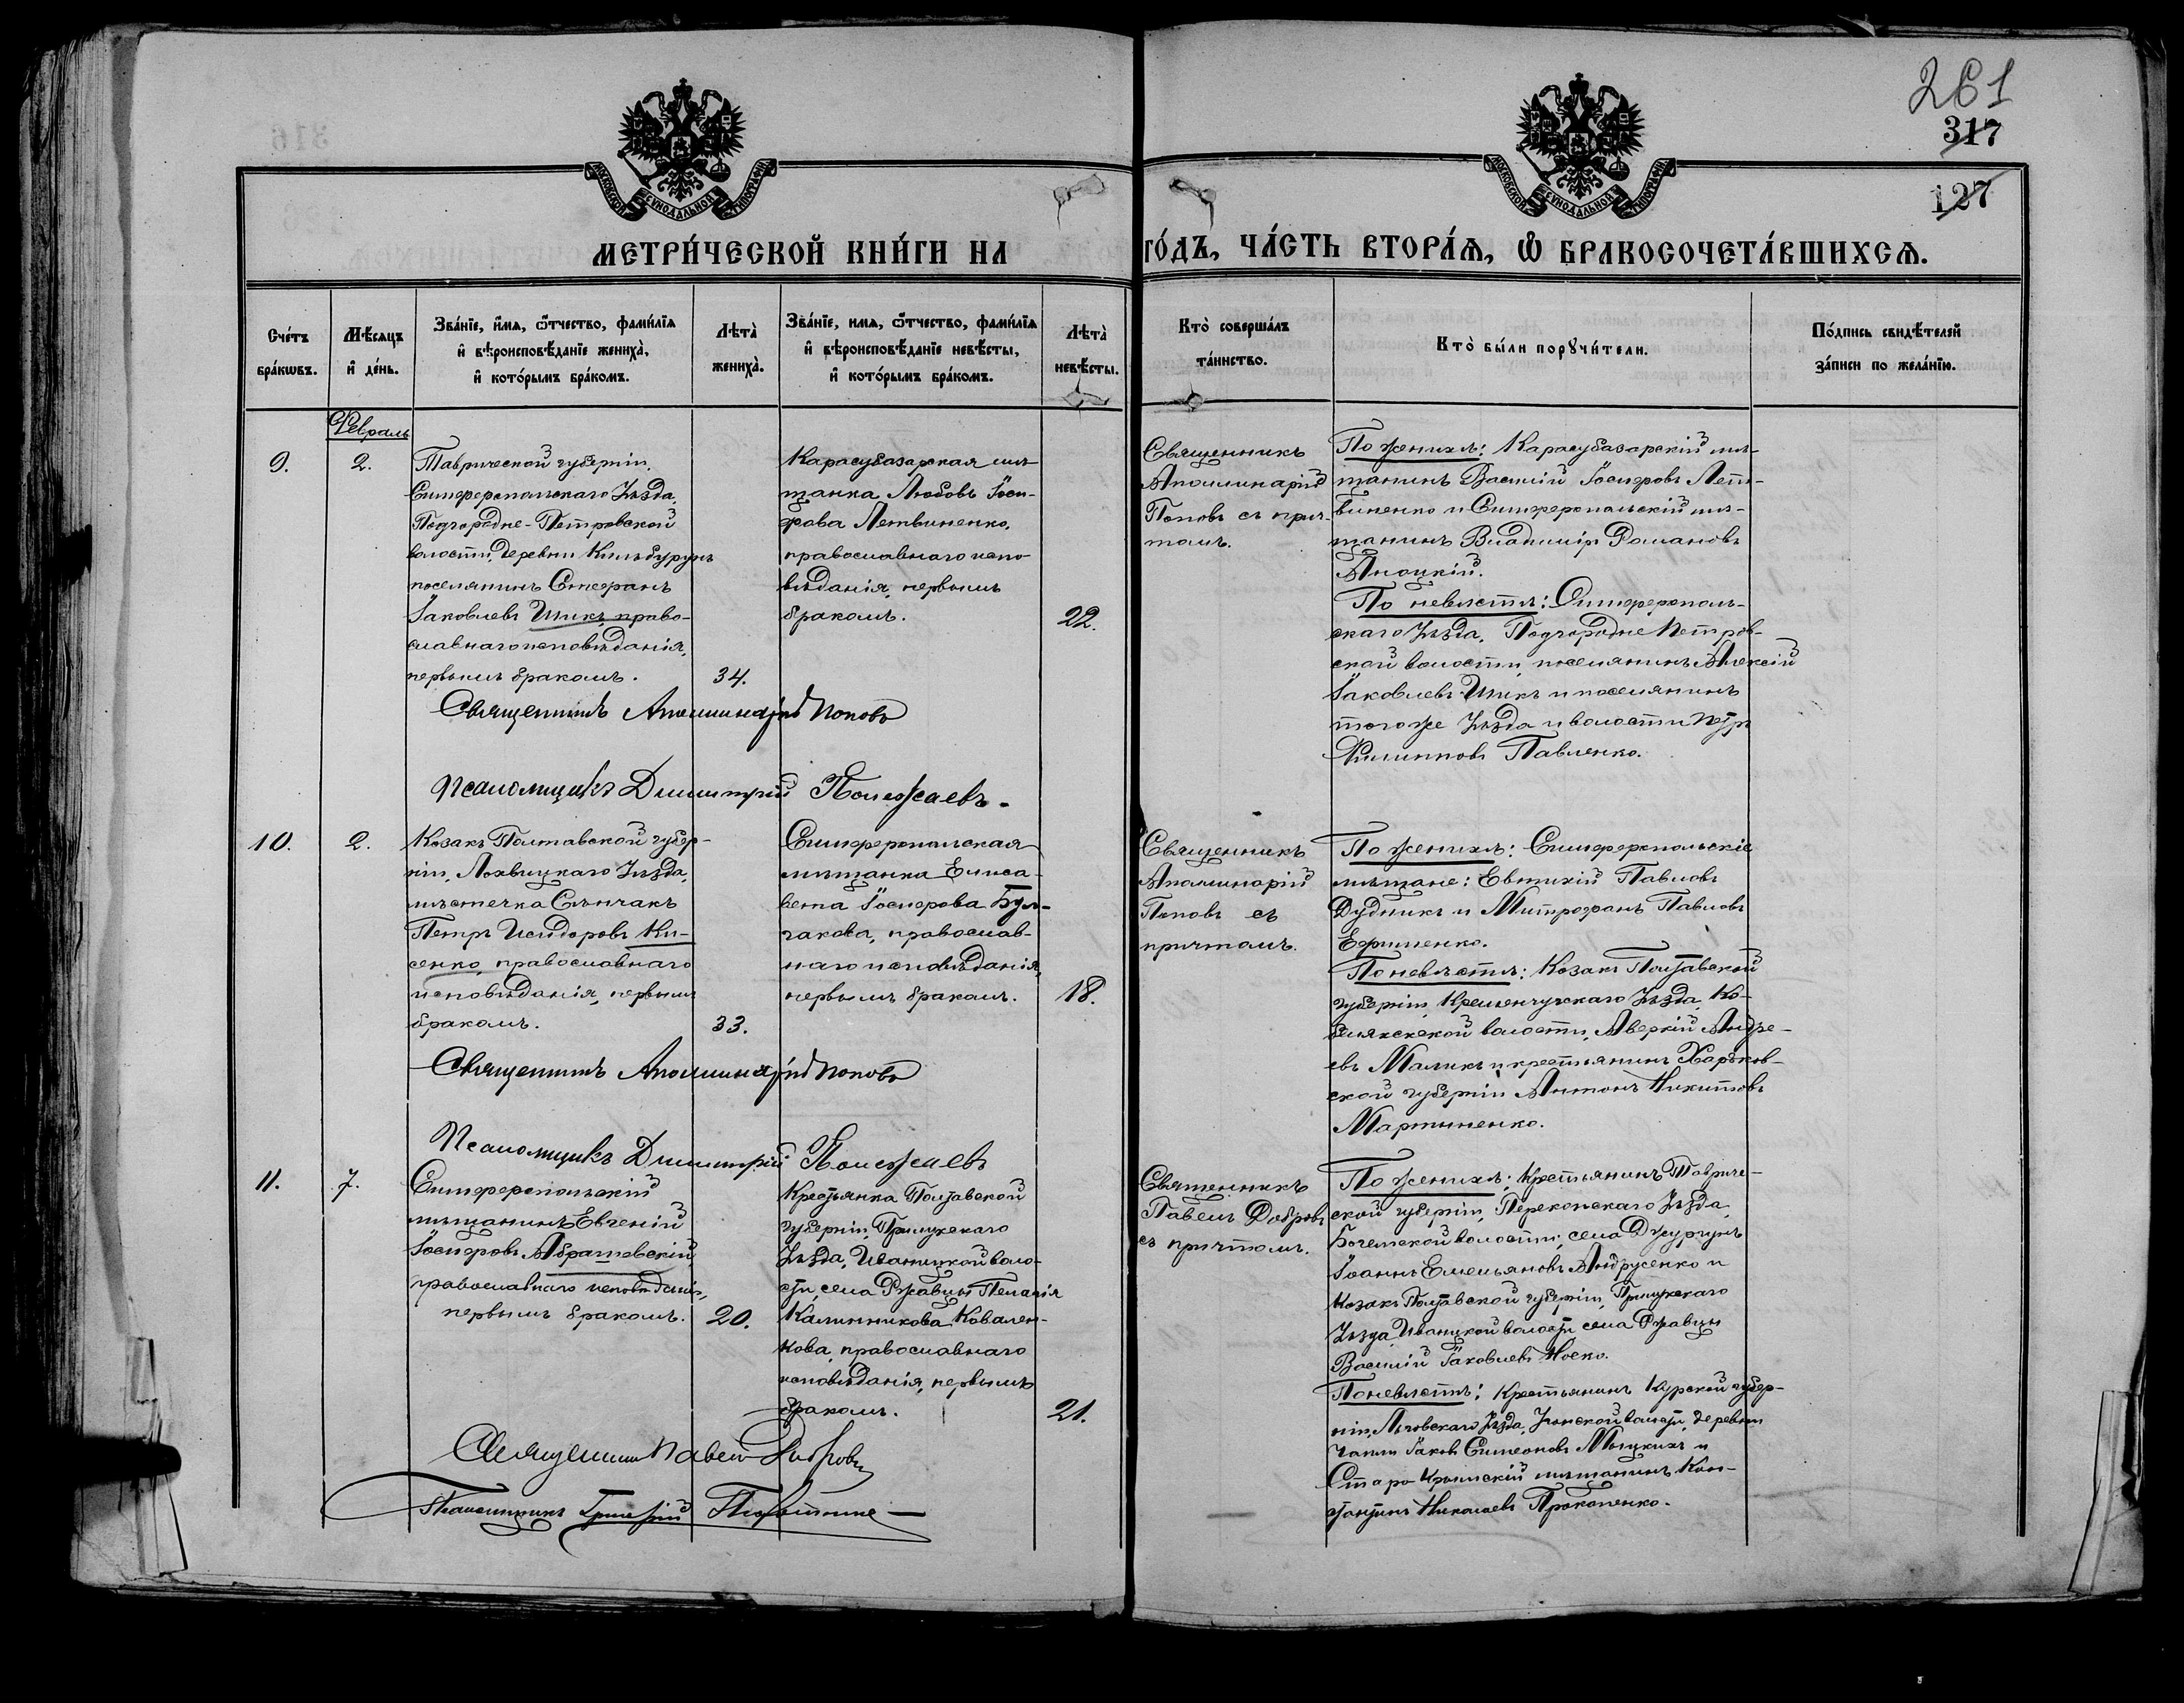 261
317
127
МОСКОВСКОЙ СУНОДАЛЬНОЙ ТИПОГРАФІИ
МОСКОВСКОЙ СУНОДАЛЬНОЙ ТИПОГРАФІИ
МЕТРИ́ЧЕСКОЙ КНИ́ГИ НА ГО́ДЪ, ЧА́СТЬ ВТОРА́Ѧ, Ѽ БРАКОСОЧЕТА́ВШИХСѦ.
Сче́тъ
бра́кѡвъ.
Мѣ́сѧцъ
и҆ де́нь.
Зва́нїе, и҆́мѧ, ѻ҆́тчество, фами́лїѧ
и҆ вѣроисповѣ́данїе жениха̀,
и҆ кото́рымъ бра́комъ.
Лѣта̀
жениха̀.
Зва́нїе, имѧ, ѻ҆́тчество, фами́лїѧ
и҆ вѣроисповѣ́данїе невѣ́сты,
и҆ кото́рымъ бра́комъ.
Лѣта̀
невѣ́сты.
Кто̀ соверша́лъ
та́инство.
Кто̀ бы́ли порꙋчи́тели.
По́дпись свидѣ́телей
за́писи по жела́нїю.
Февраль
9.
2.
Таврической губерніи,
Симферопольскаго Уѣзда,
Подгородне-Петровской
волости, деревни Кильбурунъ
поселянинъ Стефанъ
Іаковлевъ Шикъ, право-
славнаго исповѣданія,
первымъ бракомъ.
34.
Карасубазарская мѣ-
щанка Любовь Іоси-
фова Летвиненко,
православнаго испо-
вѣданія, первымъ
бракомъ.
22.
Священникъ
Аполлинарій
Поповъ съ прич-
томъ.
По женихѣ: Карасубазарскій мѣ-
щанинъ Василій Іосифовъ Лет-
виненко и Симферопольскій мѣ-
щанинъ Владиміръ Романовъ
Яноцкій.
По невѣстѣ: Симферополь-
скаго Уѣзда, Подгородне Петров-
ской волости, поселянинъ Алексій
Іаковлевъ Шикъ и поселянинъ
того же Уѣзда и волости Петръ
Филипповъ Павленко.
Священникъ Аполлинарій Поповъ
Псаломщикъ Димитрій Полежаевъ.
10.
2.
Козакъ Полтавской губер-
ніи, Лохвицкаго Уѣзда,
мѣстечка Сѣнчакъ
Петръ Исидоровъ Ки-
сенко, православнаго
исповѣданія, первымъ
бракомъ.
33.
Симферопольская
мѣщанка Елиса-
вета Іосифова Бул-
гакова, православ-
наго исповѣданія,
первымъ бракомъ.
18.
Священникъ
Аполлинарій
Поповъ съ
причтомъ.
По женихѣ: Симферопольскіе
мѣщане: Евтихій Павловъ
Дудникъ и Митрофанъ Павловъ
Ефименко.
По невѣстѣ: Козакъ Полтавской
губерніи, Кременчугскаго Уѣзда, Ко-
белякской волости, Аверкій Андре-
евъ Маликъ и крестьянинъ Харьков-
ской губерніи Антонъ Никитовъ
Мартыненко.
Священникъ Аполлинарій Поповъ
Псаломщикъ Димитрій Полежаевъ
11.
7.
Симферопольскій
мѣщанинъ Евгеній
Іосифовъ Абрашевскій,
православнаго исповѣданія,
первымъ бракомъ.
20.
Крестьянка Полтавской
губерніи, Прилукскаго
Уѣзда, Иваницкой воло-
сти, села Ржавцы Пелагія
Калинникова Ковален-
кова, православнаго
исповѣданія, первымъ
бракомъ.
21.
Священникъ
Павелъ Добровъ
съ причтомъ.
По женихѣ: Крестьянинъ Тавриче-
ской губерніи, Перекопскаго Уѣзда,
волости, села Джургунъ
Іоаннъ Емельяновъ Андрусенко и
козакъ Полтавской губерніи, Прилукскаго
Уѣзда, Иваницкой волости села Ржавцы
Василій Іаковлевъ Носко.
По невѣстѣ: Крестьянинъ Курской губер-
ніи, Льговскаго Уѣзда, волости, деревни
Іаковъ Симеоновъ и
Старо-Крымскій мѣщанинъ Кон-
стантинъ Николаевъ Прокопенко.
Священникъ Павелъ Добровъ
Псаломщикъ Григорій